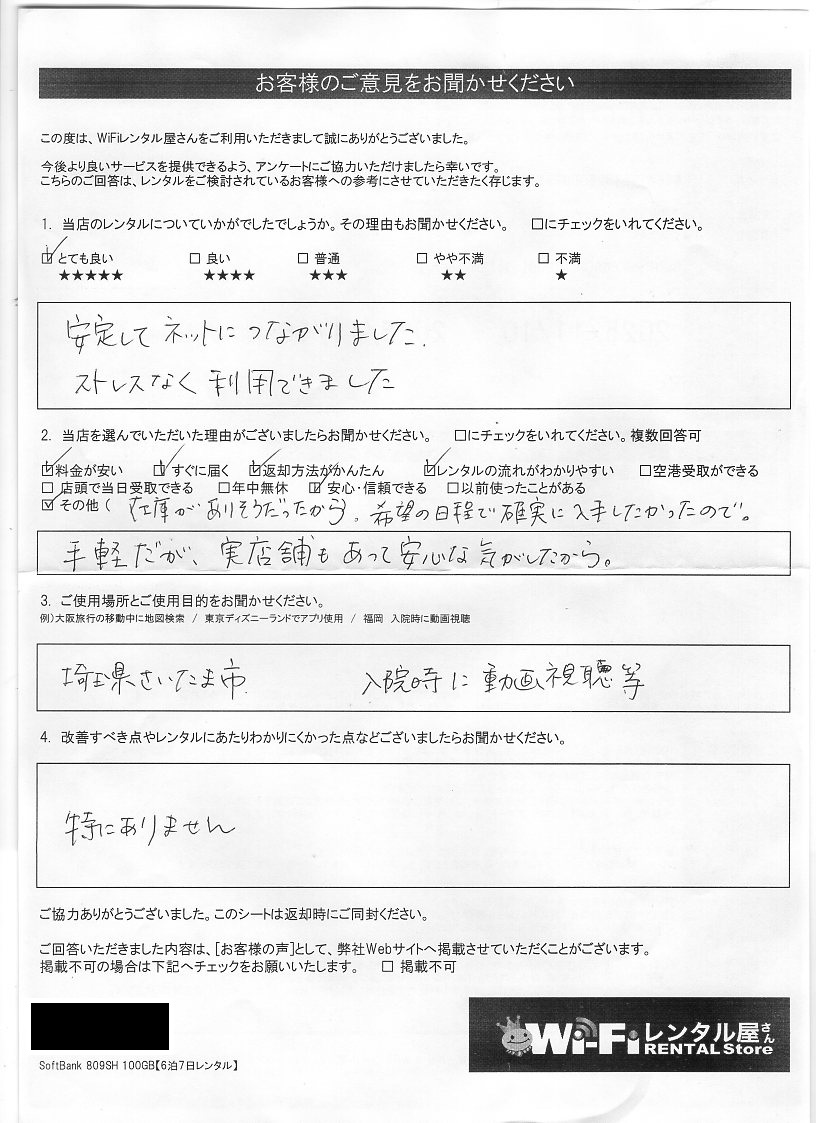 お客様のご意見をお聞かせください
この度は、WiFiレンタル屋さんをご利用いただきまして誠にありがとうございました。
今後より良いサービスを提供できるよう、アンケートにご協力いただけましたら幸いです。
こちらのご回答は、レンタルをご検討されているお客様への参考にさせていただきたく存じます。
1. 当店のレンタルについていかがでしたでしょうか。その理由もお聞かせください。 □にチェックをいれてください。
☑とても良い □ 良い □ 普通 □ やや不満 □ 不満
★★★★★ ★★★★ ★★★ ★★ ★
安定して ネットに つながりました.
ストレスなく 利用できました
2. 当店を選んでいただいた理由がございましたらお聞かせください。 □にチェックをいれてください。複数回答可
☑料金が安い ☑すぐに届く ☑返却方法がかんたん ☑レンタルの流れがわかりやすい □空港受取ができる
□ 店頭で当日受取できる □年中無休 ☑安心・信頼できる □以前使ったことがある
☑その他( 在庫がありそうだったから)。希望の日程で確実に入手したかったので。
手軽だが、実店舗もあって安心な気がしたから。
3. ご使用場所とご使用目的をお聞かせください。
例)大阪旅行の移動中に地図検索 / 東京ディズニーランドでアプリ使用 / 福岡 入院時に動画視聴
埼玉県さいたま市. 入院時に動画視聴等
4. 改善すべき点やレンタルにあたりわかりにくかった点などございましたらお聞かせください。
特にありません
ご協力ありがとうございました。このシートは返却時にご同封ください。
ご回答いただきました内容は、[お客様の声]として、弊社Webサイトへ掲載させていただくことがございます。
掲載不可の場合は下記へチェックをお願いいたします。 □ 掲載不可
Wi-Fi レンタル屋さん
RENTAL Store
SoftBank 809SH 100GB【6泊7日レンタル】